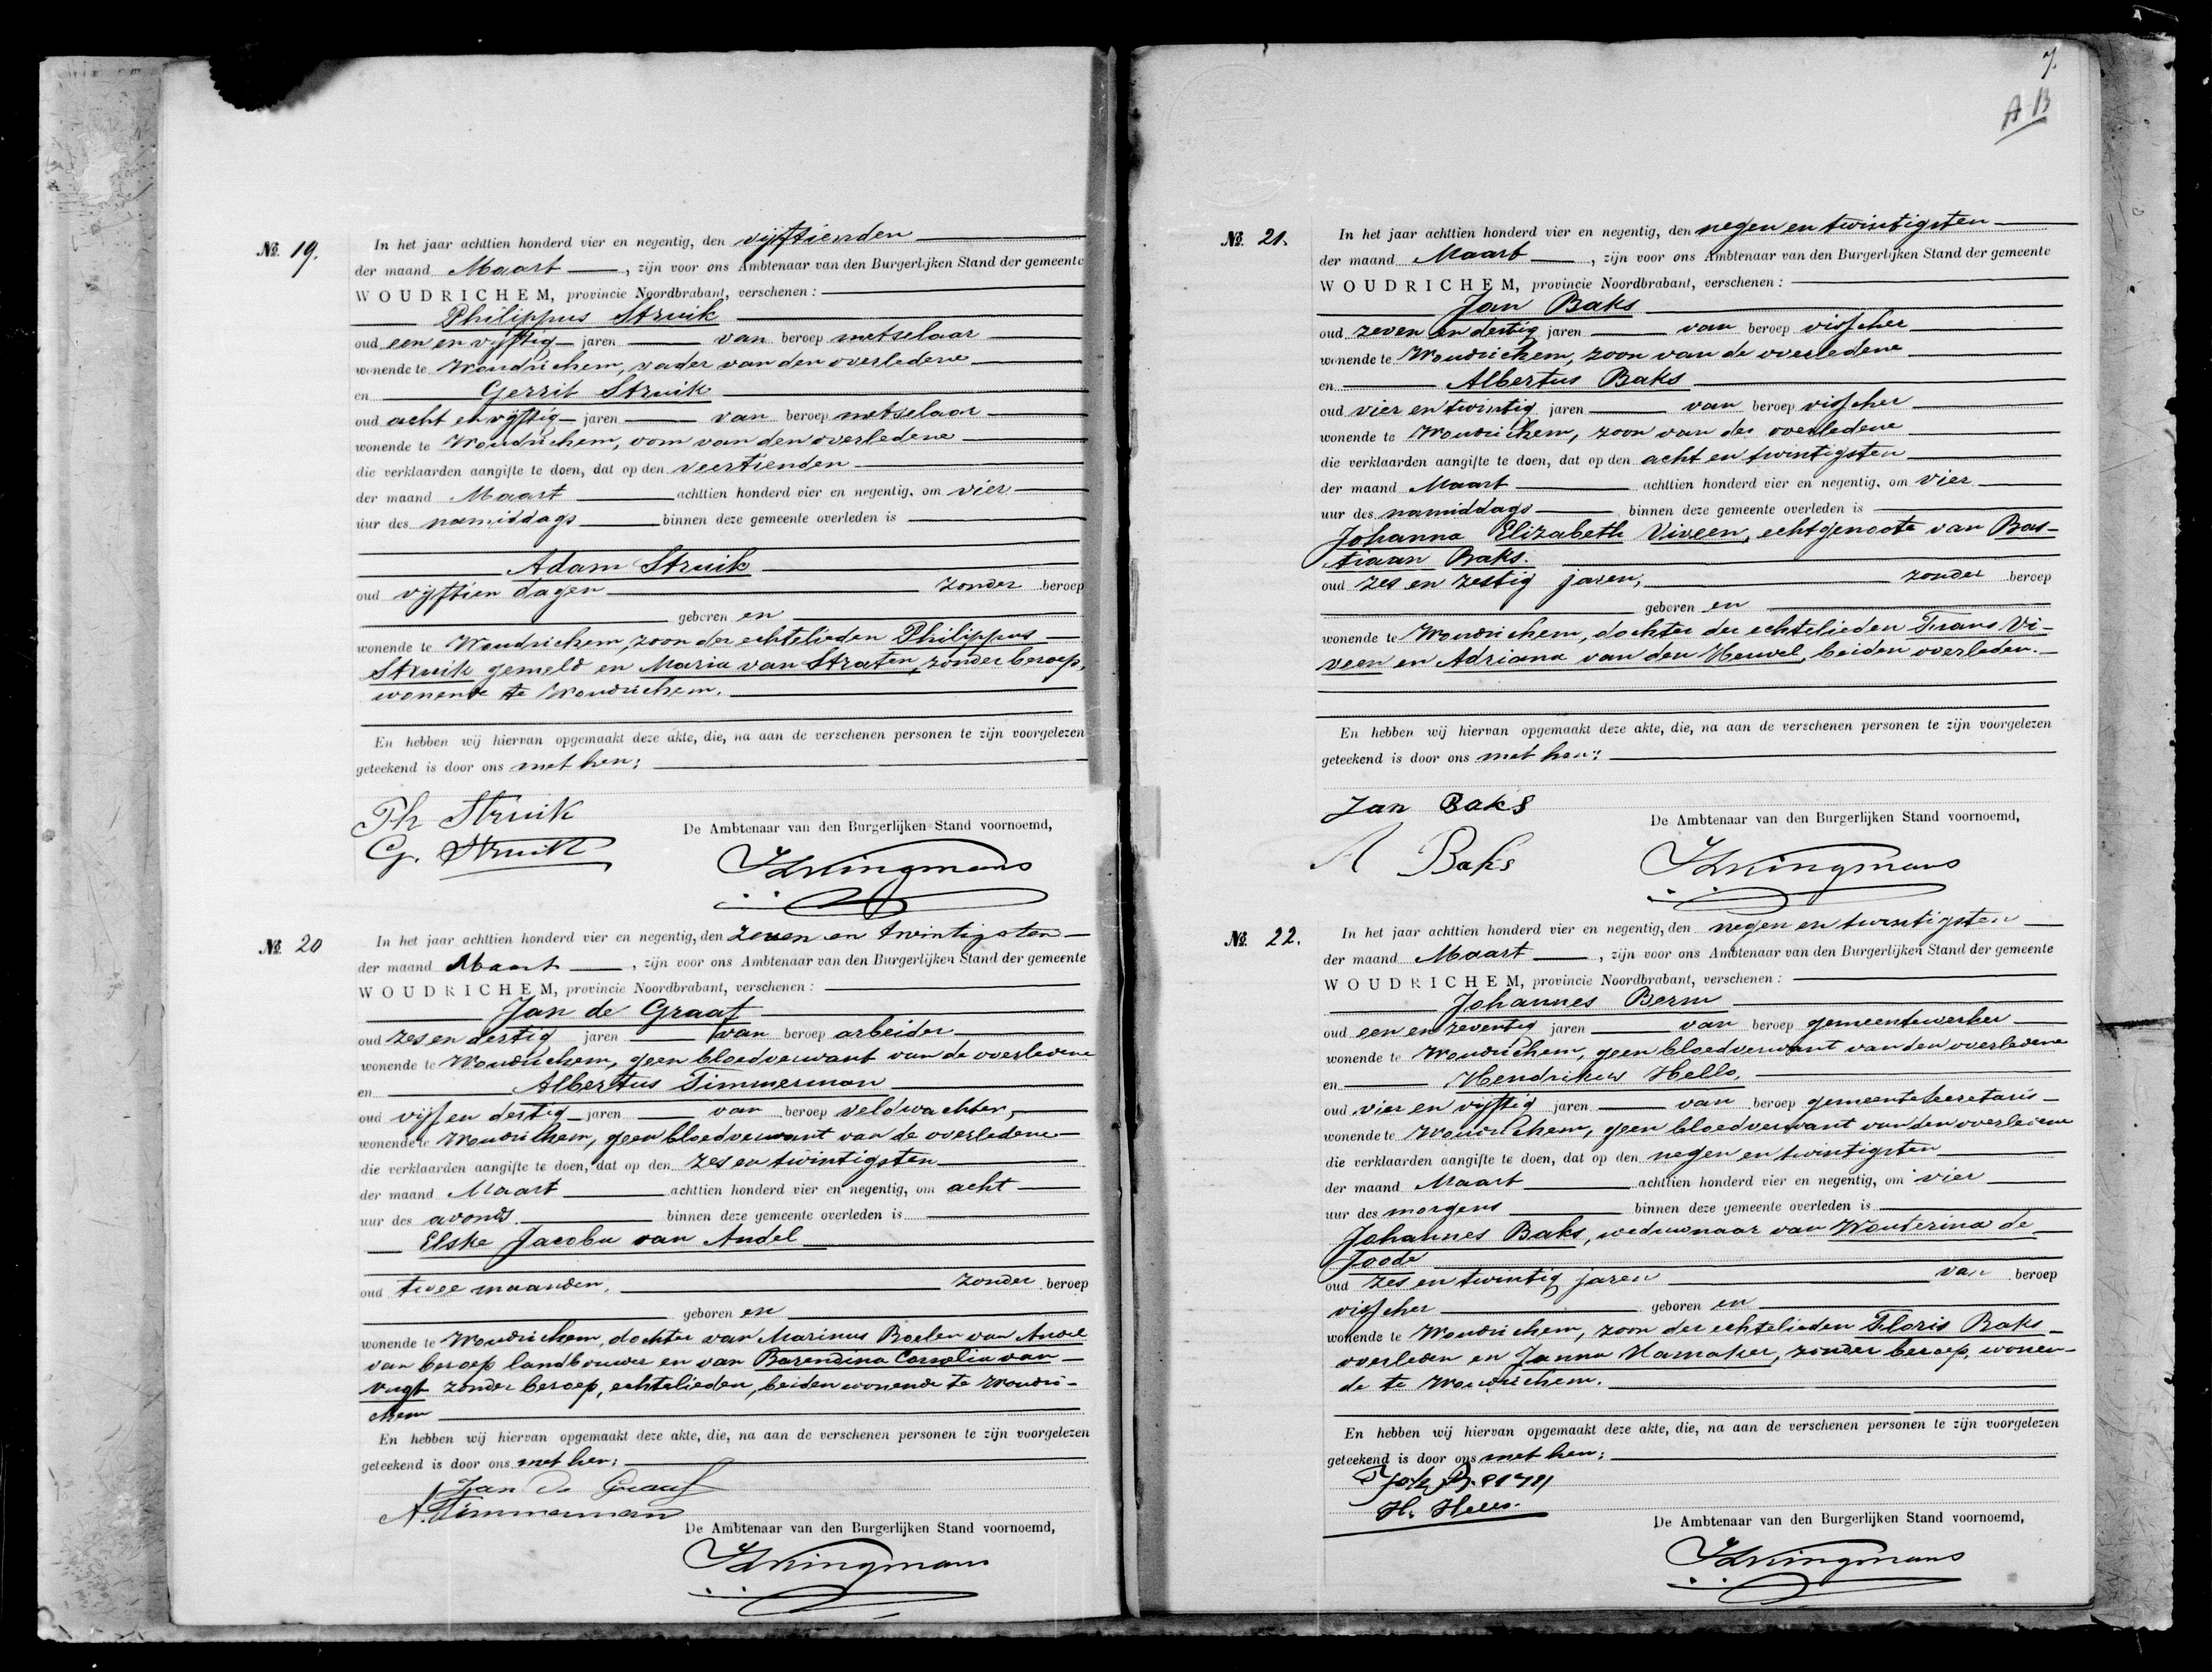 No. 19.
In het jaar achttien honderd vier en negentig, den vijftienden
der maand Maart, zijn voor ons Ambtenaar van den Burgerlijken Stand der gemeente
WOUDRICHEM, provincie Noordbrabant, verschenen:
Philippus Struik
oud een en vijftig jaren van beroep metselaar
wonende te Woudrichem, vader van den overledene
en Gerrit Struik
oud acht en vijftig jaren van beroep metselaar
wonende te Woudrichem, oom van den overledene
die verklaarden aangifte te doen, dat op den veertienden
der maand Maart achttien honderd vier en negentig, om vier
uur des namiddags binnen deze gemeente overleden is
Adam Struik
oud vijftien dagen zonder beroep
geboren en
wonende te Woudrichem, zoon der echtelieden Philippus
Struik gemeld en Maria van Straten, zonder beroep,
wonende te Woudrichem.
En hebben wij hiervan opgemaakt deze akte, die, na aan de verschenen personen te zijn voorgelezen
geteekend is door ons met hen:
Ph Struik
G. Struik
De Ambtenaar van den Burgerlijken Stand voornoemd,
No. 20
In het jaar achttien honderd vier en negentig, den zeven en twintigsten
der maand Maart, zijn voor ons Ambtenaar van den Burgerlijken Stand der gemeente
WOUDRICHEM, provincie Noordbrabant, verschenen:
Jan de Graaf
oud zes en dertig jaren van beroep arbeider
wonende te Woudrichem, geen bloedverwant van de overledene
en Albertus Timmerman
oud vijf en dertig jaren van beroep veldwachter,
wonende te Woudrichem, geen bloedverwant van de overledene
die verklaarden aangifte te doen, dat op den zes en twintigsten
der maand Maart achttien honderd vier en negentig, om acht
uur des avonds binnen deze gemeente overleden is
Elske Jacoba van Andel
oud twee maanden, zonder beroep
geboren en
wonende te Woudrichem, dochter van Marinus Roelen van Andel
van beroep landbouwer en van Barendina Cornelia van
Vugt zonder beroep, echtelieden, beiden wonende te Woudri-
chem
En hebben wij hiervan opgemaakt deze akte, die, na aan de verschenen personen te zijn voorgelezen
geteekend is door ons met hen:
Jan de Graaf
A. Timmerman
De Ambtenaar van den Burgerlijken Stand voornoemd,
7.
A B
No. 21.
In het jaar achttien honderd vier en negentig, den negen en twintigsten
der maand Maart, zijn voor ons Ambtenaar van den Burgerlijken Stand der gemeente
WOUDRICHEM, provincie Noordbrabant, verschenen:
Jan Baks
oud zeven en dertig jaren van beroep visscher
wonende te Woudrichem, zoon van de overledene
en Albertus Baks
oud vier en twintig jaren van beroep visscher
wonende te Woudrichem, zoon van de overledene
die verklaarden aangifte te doen, dat op den acht en twintigsten
der maand Maart achttien honderd vier en negentig, om vier
uur des namiddags binnen deze gemeente overleden is
Johanna Elizabeth Viveen, echtgenoote van Bas-
tiaan Baks.
oud zes en zestig jaren, zonder beroep
geboren en
wonende te Woudrichem, dochter der echtelieden Frans Vi-
veen en Adriana van den Heuvel, beiden overleden.
En hebben wij hiervan opgemaakt deze akte, die, na aan de verschenen personen te zijn voorgelezen
geteekend is door ons met hen:
Jan Baks
A Baks
De Ambtenaar van den Burgerlijken Stand voornoemd,
No. 22.
In het jaar achttien honderd vier en negentig, den negen en twintigsten
der maand Maart, zijn voor ons Ambtenaar van den Burgerlijken Stand der gemeente
WOUDRICHEM, provincie Noordbrabant, verschenen:
Johannes Berm
oud een en zeventig jaren van beroep gemeentewerker
wonende te Woudrichem, geen bloedverwant van den overledene
en Hendrikus Hello,
oud vier en vijftig jaren van beroep gemeentesecretaris
wonende te Woudrichem, geen bloedverwant van den overledene
die verklaarden aangifte te doen, dat op den negen en twintigsten
der maand Maart achttien honderd vier en negentig, om vier
uur des morgens binnen deze gemeente overleden is
Johannes Baks, weduwnaar van Wouterina de
Joode
oud zes en twintig jaren van beroep
visscher geboren en
wonende te Woudrichem, zoon der echtelieden Floris Baks
overleden en Janna Hamaker, zonder beroep, wonen-
de te Woudrichem.
En hebben wij hiervan opgemaakt deze akte, die, na aan de verschenen personen te zijn voorgelezen
geteekend is door ons met hen:
H. Hello.
De Ambtenaar van den Burgerlijken Stand voornoemd,